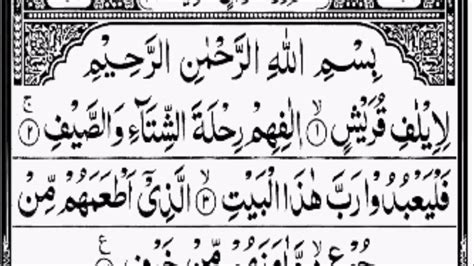 بِسْمِ اللهِ الرَّحْمٰنِ الرَّحِيْمِ
لِاِيْلٰفِ قُرَيْشٍ ۙ﴿۱﴾ اٖلٰفِهِمْ رِحْلَةَ الشِّتَآءِ وَالصَّيْفِ ۚ﴿۲﴾
فَلْيَعْبُدُوْا رَبَّ هٰذَا الْبَيْتِ ۙ﴿۳﴾ الَّذِيْٓ اَطْعَمَهُمْ مِّنْ
جُوْعٍ ۙ وَّاٰمَنَهُمْ مِّنْ خَوْفٍ